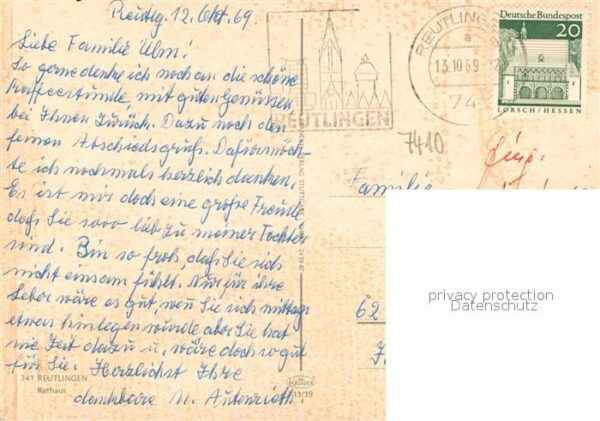 Reutlg. 12. Okt. 69
Liebe Familie Ulm!
So gerne denke ich noch an die schöne
Kaffeestunde, mit guten Genüssen
bei Ihnen zurück. Dazu noch den
feinen Abschiedsgruß. Dafür möch-
te ich nochmals herzlich danken.
Es ist mir doch eine große Freude
daß Sie sooo lieb zu meiner Tochter
sind. Bin so froh, daß Sie sich
nicht einsam fühlt. Nur für ihre
Leber wäre es gut, wen Sie sich mittags
etwas hinlegen würde aber Sie hat
nie Zeit dazu u. wäre doch so gut
für Sie. Herzlichst Ihre
dankbare M. Autenrieth.
741 REUTLINGEN
Rathaus
REUTLINGEN
REUTLINGEN
a
13.10.69
74
Deutsche Bundespost
20
LORSCH/HESSEN
7410
Familie
62
KRÜGER
13/19
privacy protection
Datenschutz